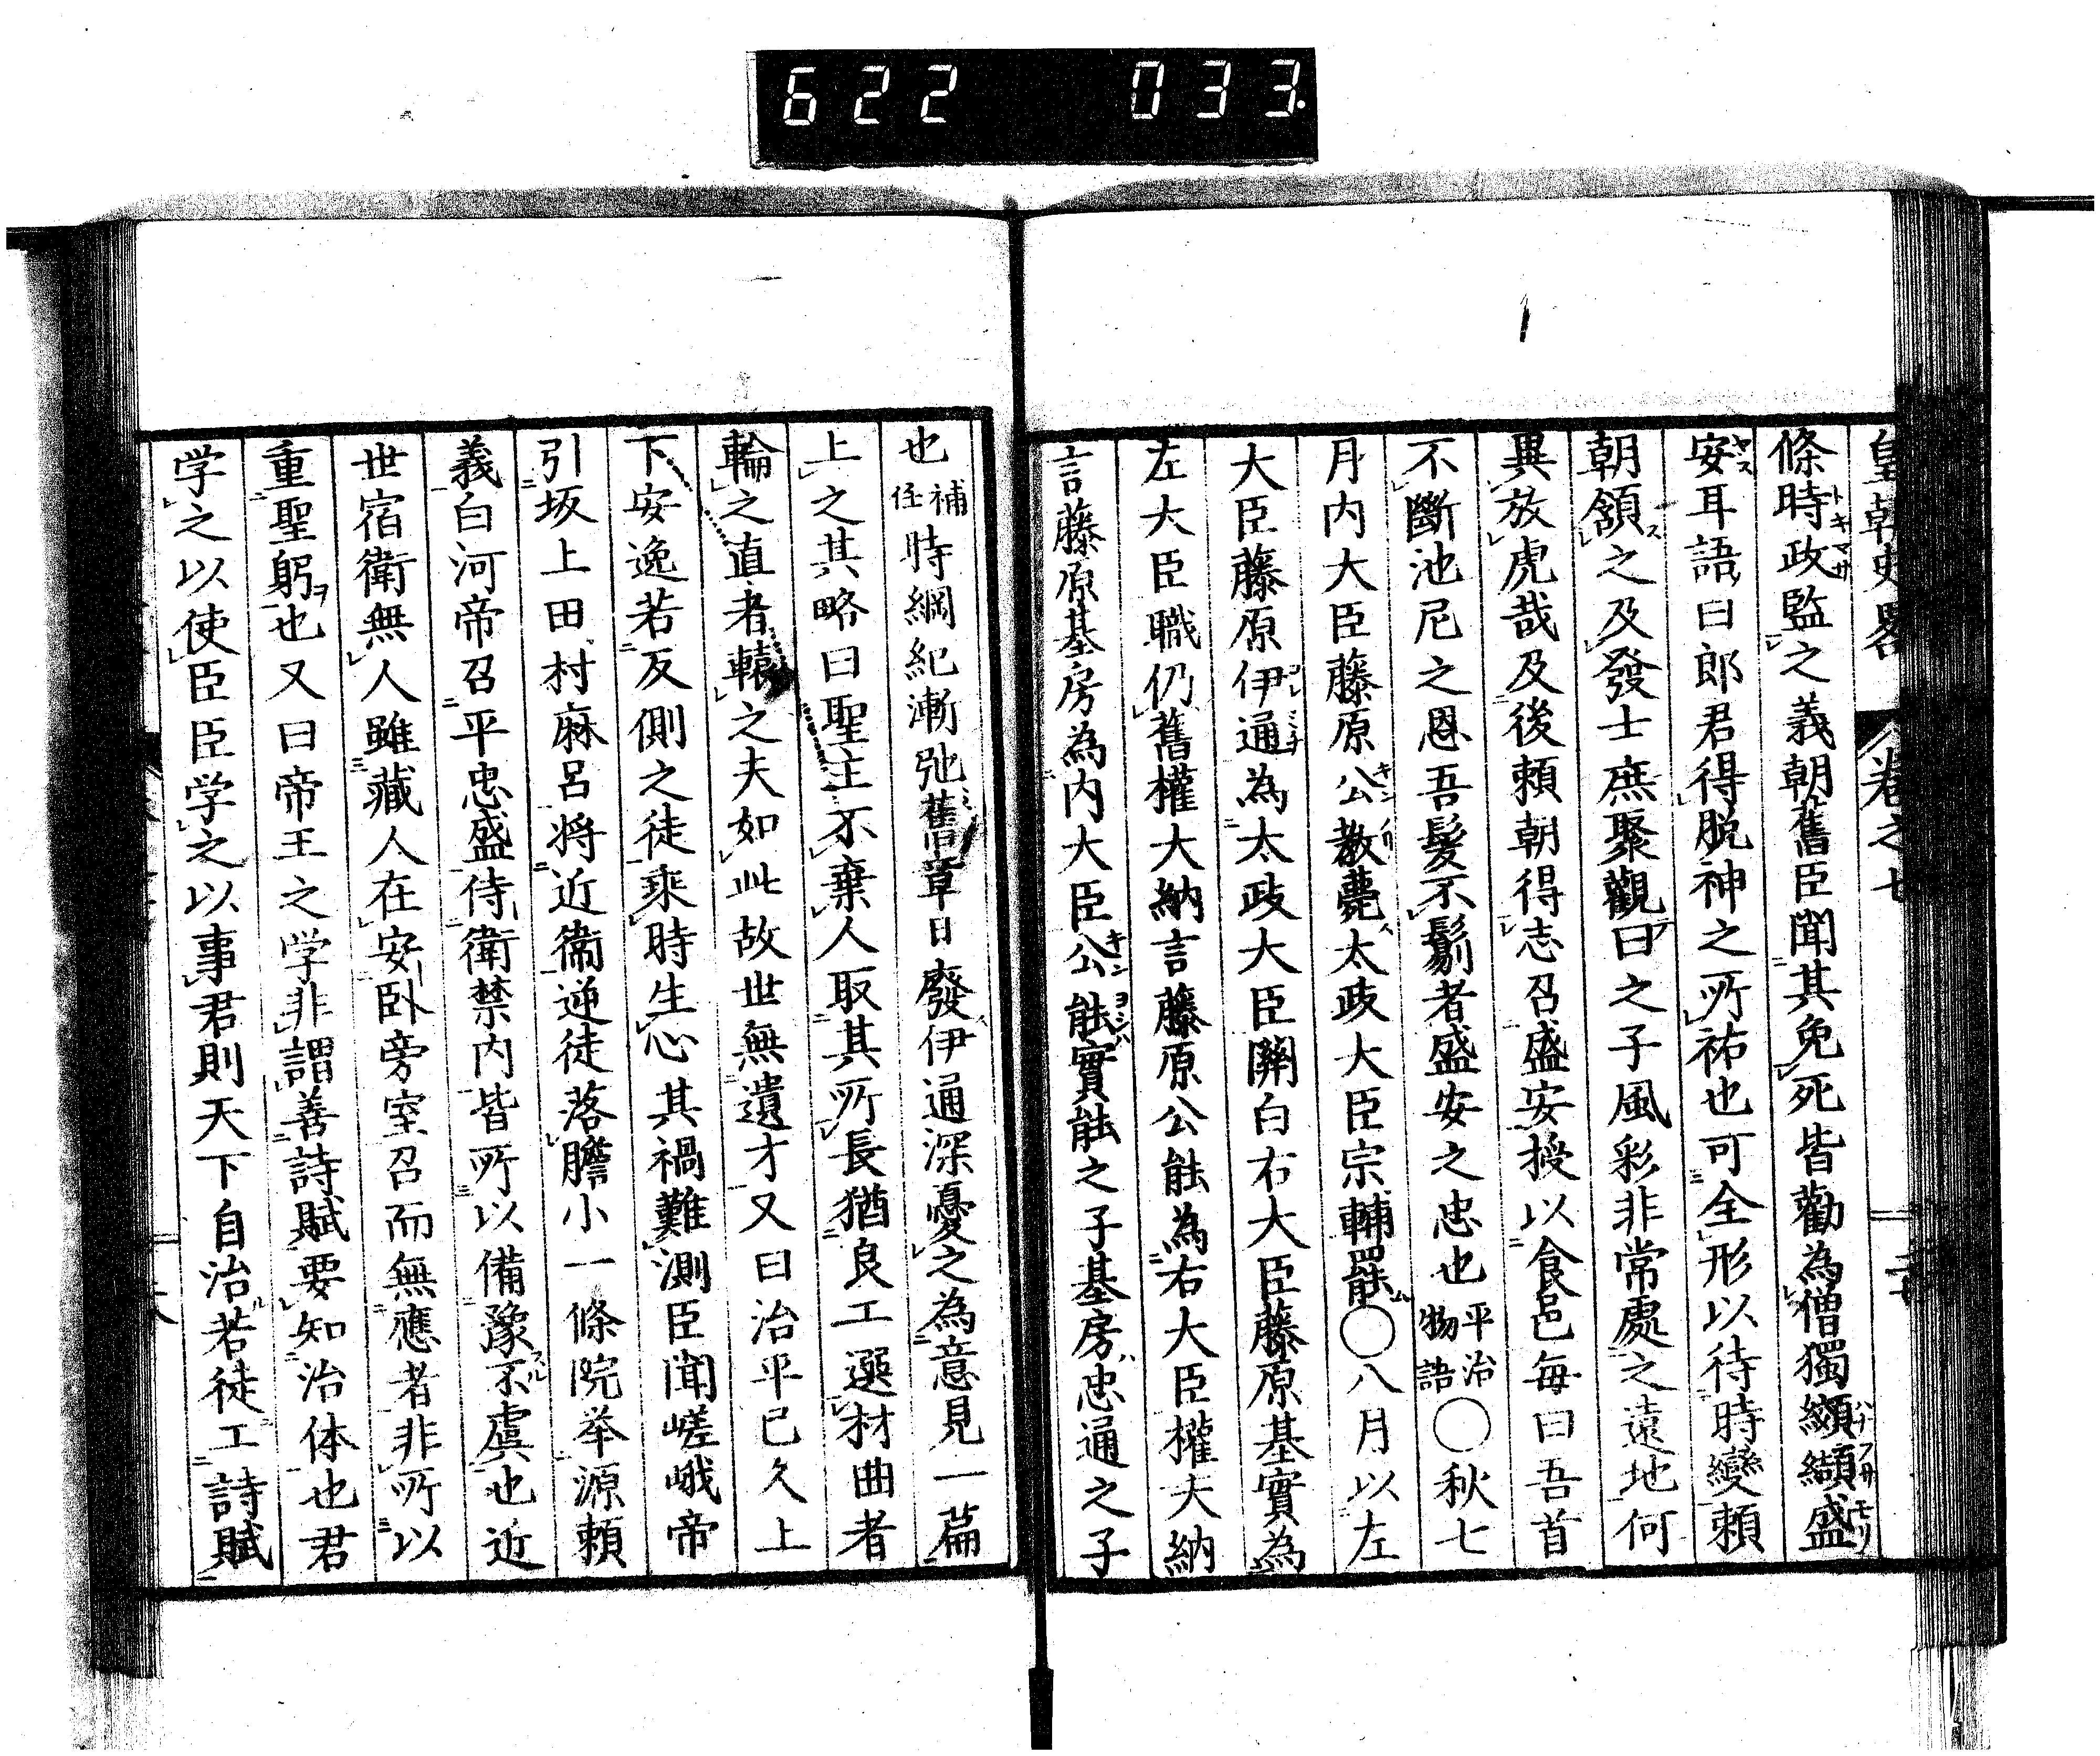 622 033.
皇朝史略 卷之七
條時政監之義朝舊臣聞其免死皆勸為僧獨纐纈盛
安耳語曰郎君得脱神之所祐也可全形以待時變頼
朝頷之及發士庶聚觀曰之子風彩非常處之遠地何
異放虎哉及後頼朝得志召盛安授以食邑每曰吾首
不斷池尼之恩吾髮不鬀者盛安之忠也平治物語〇秋七
月内大臣藤原公教薨太政大臣宗輔罷〇八月以左
大臣藤原伊通為太政大臣關白右大臣藤原基實為
左大臣職仍舊權大納言藤原公能為右大臣權大納
言藤原基房為内大臣公能實能之子基房忠通之子
也補任時綱紀漸弛舊章日廢伊通深憂之為意見一篇
上之其略曰聖主不棄人取其所長猶良工選材曲者
輪之直者轅之夫如此故世無遺才又曰治平已久上
下安逸若反側之徒乘時生心其禍難測臣聞嵯峨帝
引坂上田村麻呂将近衞逆徒落膽小一條院举源頼
義白河帝召平忠盛侍衛禁内皆所以備豫不虞也近
世宿衛無人雖藏人在安臥旁室召而無應者非所以
重聖躬也又曰帝王之学非謂善詩賦要知治体也君
学之以使臣臣学之以事君則天下自治若徒工詩賦